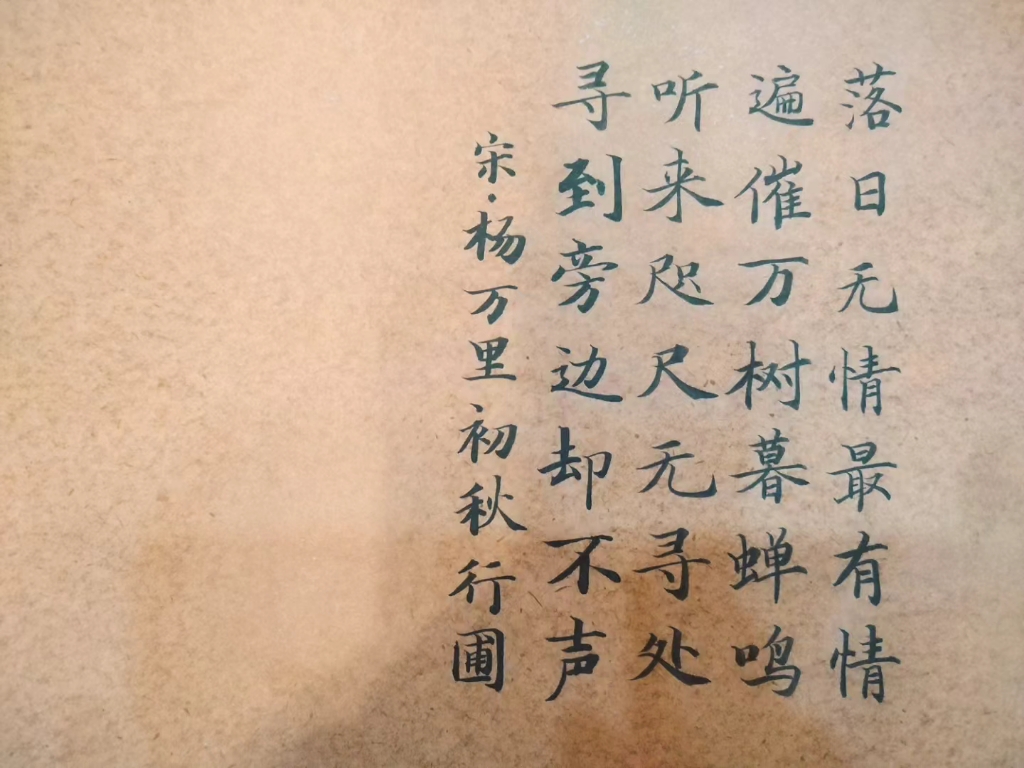 落日无情最有情
遍催万树暮蝉鸣
听来咫尺无寻处
寻到旁边却不声
宋·杨万里初秋行圃